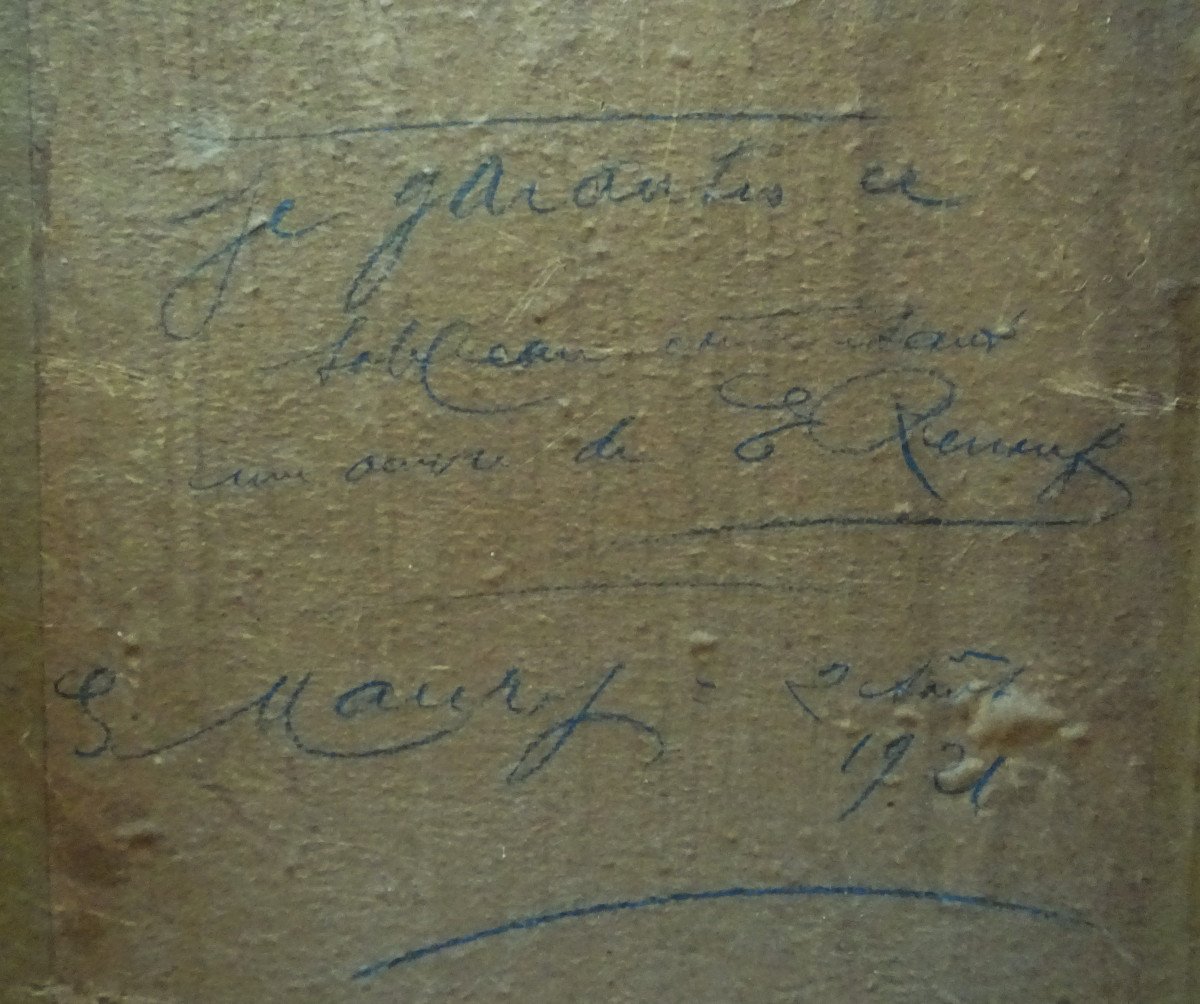 Je garantis ce
tableau comme étant
une œuvre de E Renouf
E. Maury = 2 Août
1921